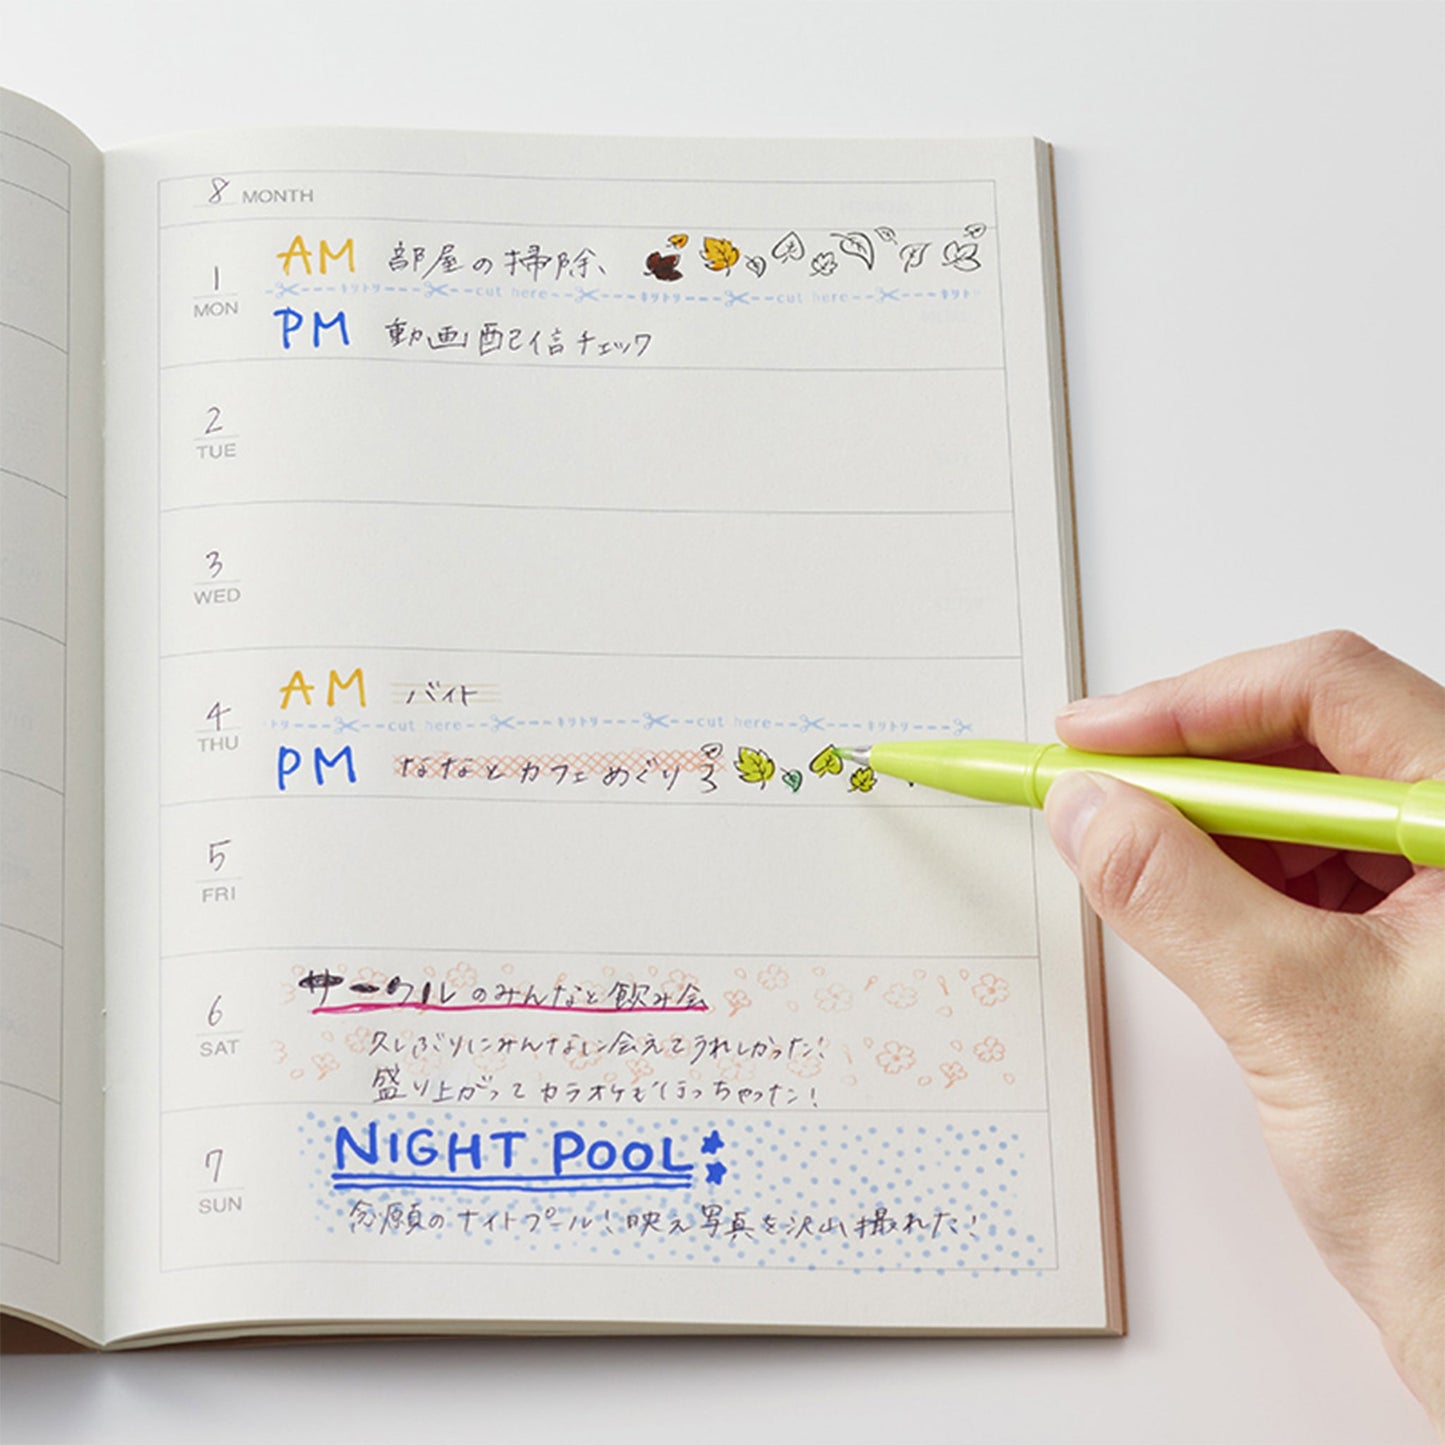 8 MONTH
AM 部屋の掃除、
1
MON
キリトリ cut here キリトリ cut here キリト
PM 動画配信チェック
2
TUE
3
WED
AM バイト
4
THU
トリ cut here キリトリ cut here キリトリ
PM ななとカフェめぐり
5
FRI
サークルのみんなと飲み会
6
SAT
久しぶりにみんなに会えてうれしかった!
盛り上がってカラオケも行っちゃった!
NIGHT POOL
7
SUN
念願のナイトプール!映え写真を沢山撮れた!